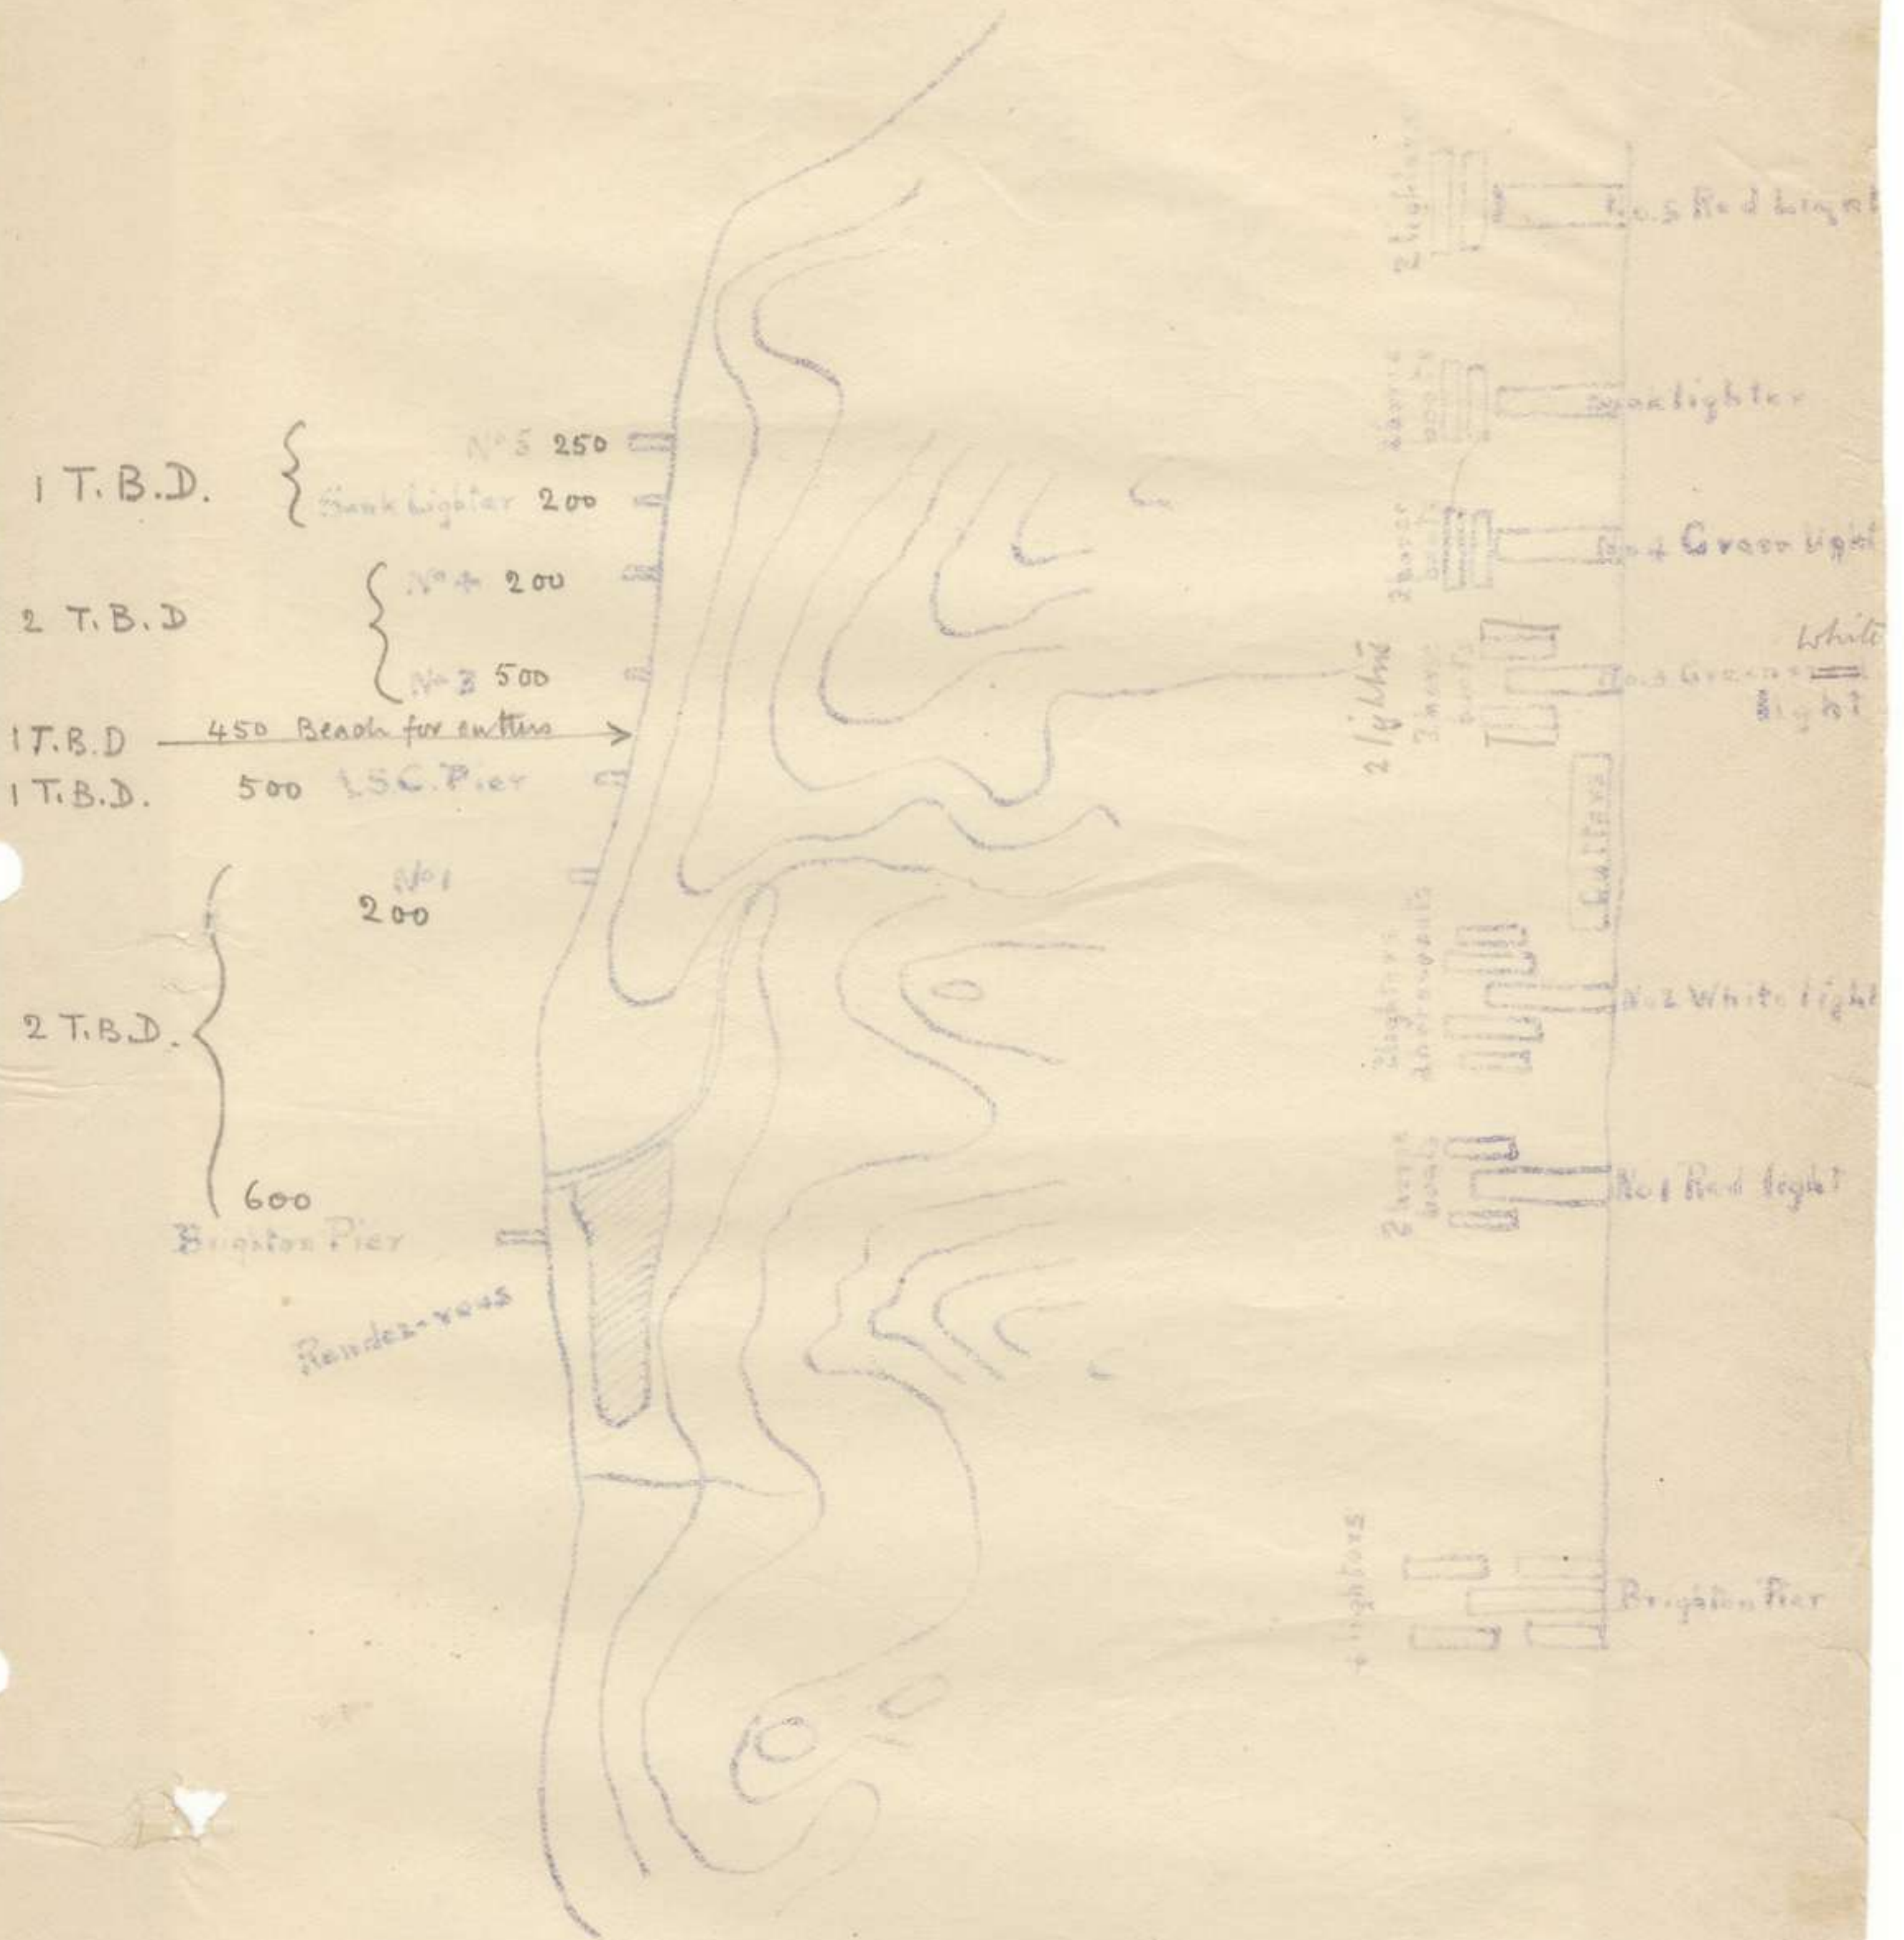 1 T.B.D.
No 5 250
Sunk Lighter 200
2 T.B.D
No 4 200
No 3 500
1 T.B.D 450 Beach for cutters
1 T.B.D. 500 A.S.C. Pier
No 1
200
2 T.B.D.
600
Brighton Pier
Rendez-vous
2 lighters
No. 5 Red Light
2 horse
boats
Sunk lighter
2 horse
boats
No 4 Green light
2 lighters
3 horse
boats
White
No. 3 Green
light
Cutters
2 lighters
2 horse boats
No 2 White light
2 horse
boats
No 1 Red light
4 lighters
Brighton Pier